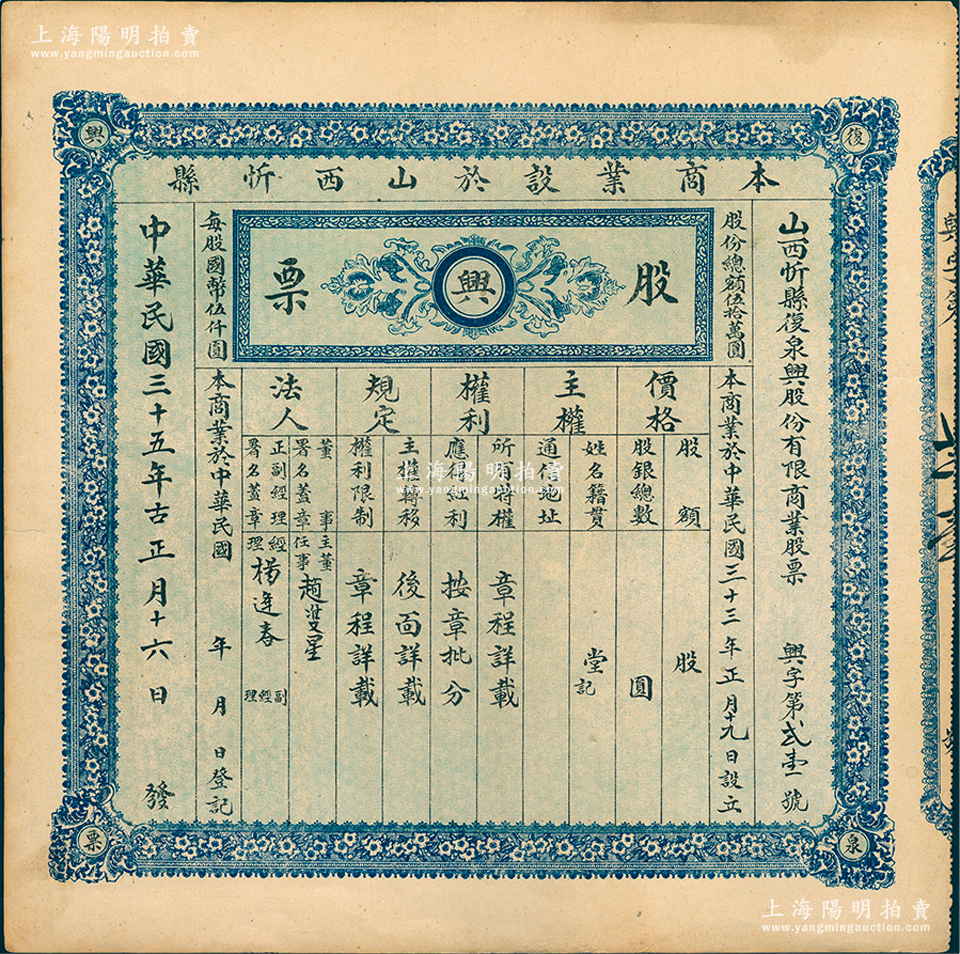 上海陽明拍賣
www.yangmingauction.com
復
興
泉
票
本商業設於山西忻縣
山西忻縣復泉興股份有限商業股票 興字第弍壹號
股份總額伍拾萬圓
本商業於中華民國三十三年正月十九日設立
股 興 票
每股國幣伍仟圓
價格
股額 股
股銀總數 圓
主權
姓名籍貫 堂記
通信地址
權利
所有權 章程詳載
應得紅利 按章批分
規定
主權轉移 後面詳載
權利限制 章程詳載
法人
董事署名蓋章 主任董事 趙
正副經理署名蓋章 經理 楊逢春 副經理
本商業於中華民國 年 月 日登記
中華民國三十五年古正月十六日 發
上海陽明拍賣
www.yangmingauction.com
上海陽明拍賣
www.yangmingauction.com